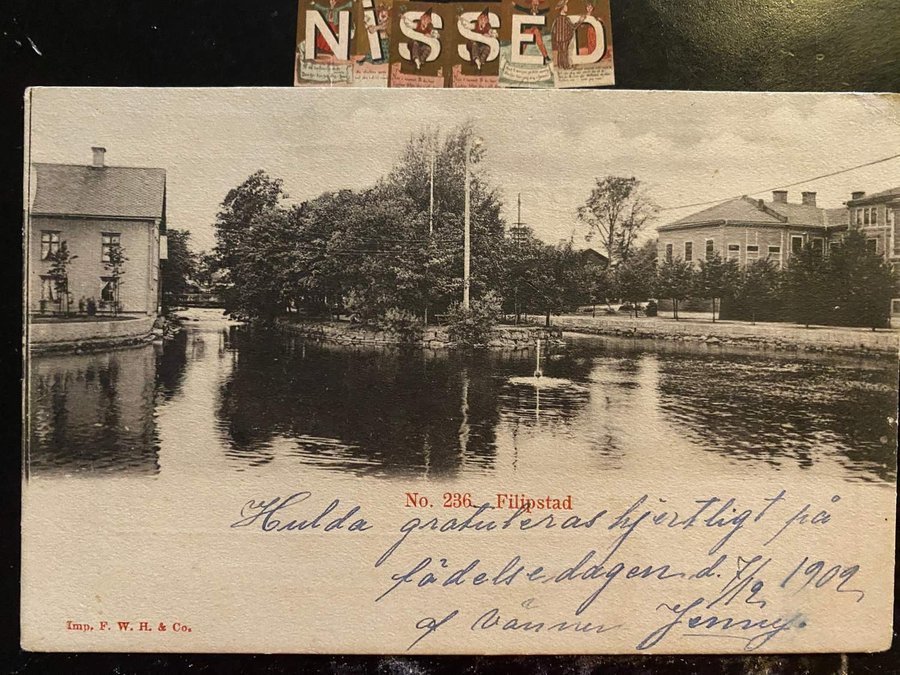 NISSED
No. 236. Filipstad
Hulda gratuleras hjertligt på
födelsedagen d. 7/12 1902
af vännen Jenny.
Imp. F. W. H. & Co.